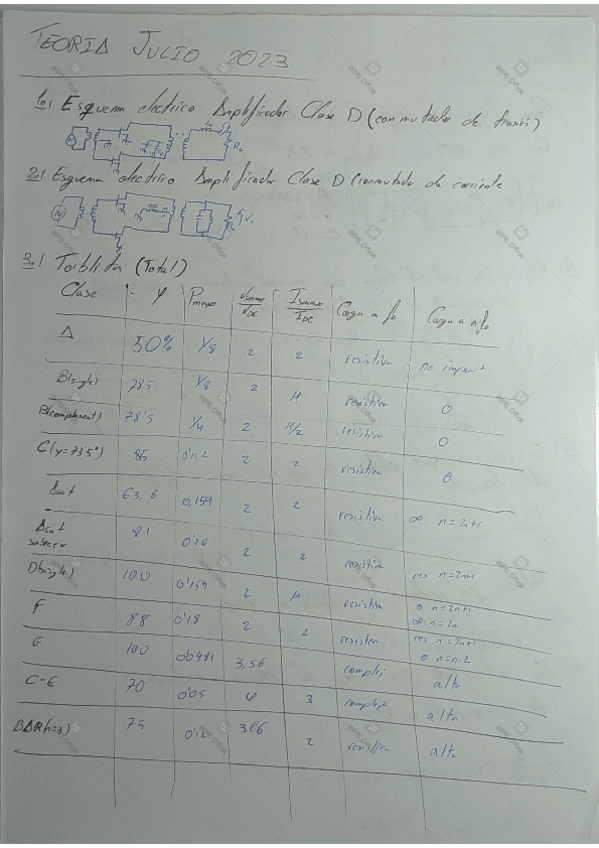 TEORIA JULIO 2023
1.1 Esquema electrico Amplificador Clase D (conmutador de tensión)
L0 C0 RL
2.1 Esquema electrico Amplificador Clase D (conmutado de corriente
3.1 Tablita (Total)
Clase φ Pmax Vsmax/VDC Ismax/IDC Carga a fo Carga a nfo
A 50% 1/8 2 2 resistiva no import
B(single) 78'5 1/8 2 π resistiva 0
B(complement) 78'5 1/4 2 π/2 resistiva 0
C(y=73'5°) 85 0'112 2 2 resistiva 0
Asat 63,6 0,159 2 2 resistiva ∞ n=2n+1
Asat sobreex 81 0'20 2 2 resistiva res n=2n+1
D(single) 100 0'159 2 π resistiva 0 n=2n+1
∞ n=2n
F 88 0'18 2 2 resistiva res n=2n+1
0 n=n·2
E 100 0'0981 3,56 complej alta
C-E 70 0'05 4 3 complej alta
75 0'12 3'66 2 resistiva alta